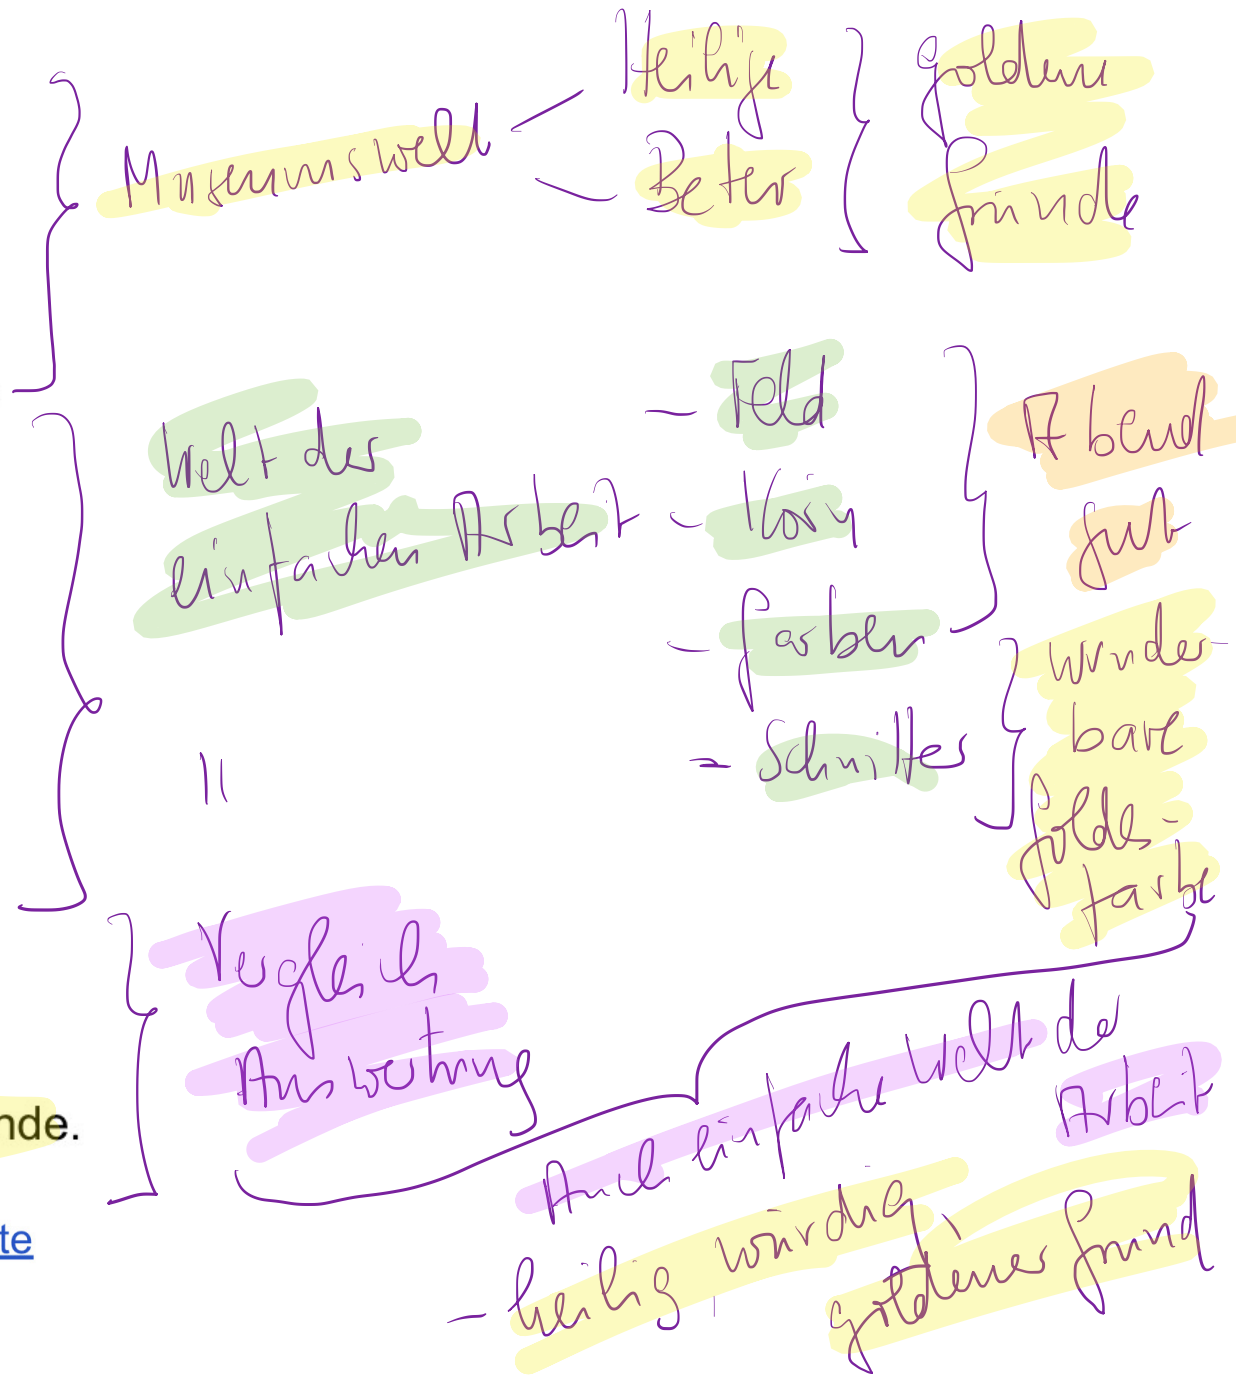 Museumswelt < Heilige
Beter
goldene
Gründe
Welt der
einfachen Arbeit
- Feld
- Korn
- Garben
- Schnitter
Abend
glut
wunder-
bare
Goldes-
farbe
"
Vergleich
Auswertung
Auch einfache Welt der
Arbeit
- heilig, würdig,
goldener Grund
nde.
te